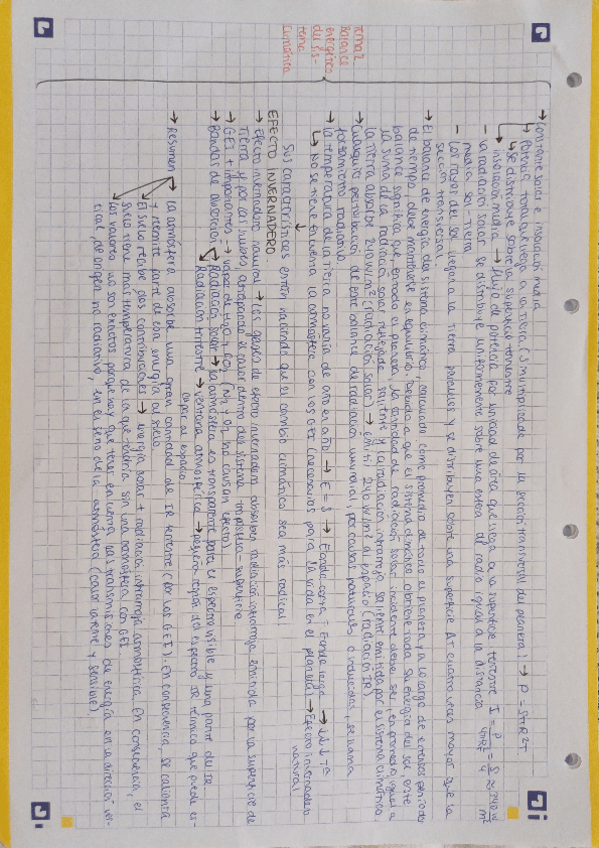 TEMA 2
Balance
energético
del sis-
tema
climático
→ Constante solar e insolación media
↳ Potencia total que llega a la tierra (S multiplicada por la sección transversal del planeta) → P = SπR²T
↳ se distribuye sobre la superficie terrestre
↳ insolación media → flujo de potencia por unidad de área que llega a la superficie terrestre I = P/4πR² = S/4 ≈ 340 W/m²
- La radiación solar se distribuye uniformemente sobre una esfera de radio igual a la distancia
media sol-tierra
- Los rayos del sol llegan a la Tierra paralelos y se distribuyen sobre una superficie AT cuatro veces mayor que la
sección transversal.
→ El balance de energía del sistema climático, calculado como promedio de todo el planeta y a lo largo de extensos períodos
de tiempo, debe mantenerse en equilibrio. Debido a que el sistema climático obtiene toda su energía del sol este
balance significa que, en todo el planeta, la cantidad de radiación solar incidente debe ser, en promedio, igual a
la suma de la radiación solar reflejada saliente y la radiación infrarroja saliente emitida por el sistema climático.
La tierra absorbe 240 W/m² (radiación solar) → emitir 240 W/m² al espacio (radiación IR)
→ Cualquier perturbación de este balance de radiación mundial, por causas naturales o inducidas, se llama
forzamiento radiativo.
→ La temperatura de la tierra no varía de año en año → E = S → Eonda corta = Eonda larga → ↓↓↓ Tª
↳ No se tiene en cuenta la atmósfera con los GEI (necesarios para la vida en el planeta) → Efecto invernadero
natural
↓
sus características están haciendo que el cambio climático sea más radical
EFECTO INVERNADERO.
→ Efecto invernadero natural → los gases de efecto invernadero absorben radiación infrarroja emitida por la superficie de
Tierra y por las nubes atrapando el calor dentro del sistema troposfera-superficie
→ GEI + importantes → vapor de H₂O + CO₂ (N₂ + O₂ no causan efecto)
→ Bandas de absorción → Radiación solar → la atmósfera es transparente para el espectro visible y una parte de IR.
↳ Radiación terrestre → ventana atmosférica → pequeña región del espectro IR térmico que puede es-
capar al espacio
→ Resumen → La atmósfera absorbe una gran cantidad de IR terrestre (por los GEI). En consecuencia, se calienta
y reemite parte de esa energía al suelo
→ El suelo recibe dos contribuciones → energía solar + radiación infrarroja atmosférica. En consecuencia, el
suelo tiene más temperatura de la que tendría sin una atmósfera con GEI
Los valores no son exactos porque hay que tener en cuenta las transmisiones de energía en la dirección ver-
tical, de origen no radiativo, en el seno de la atmósfera (calor latente y sensible).